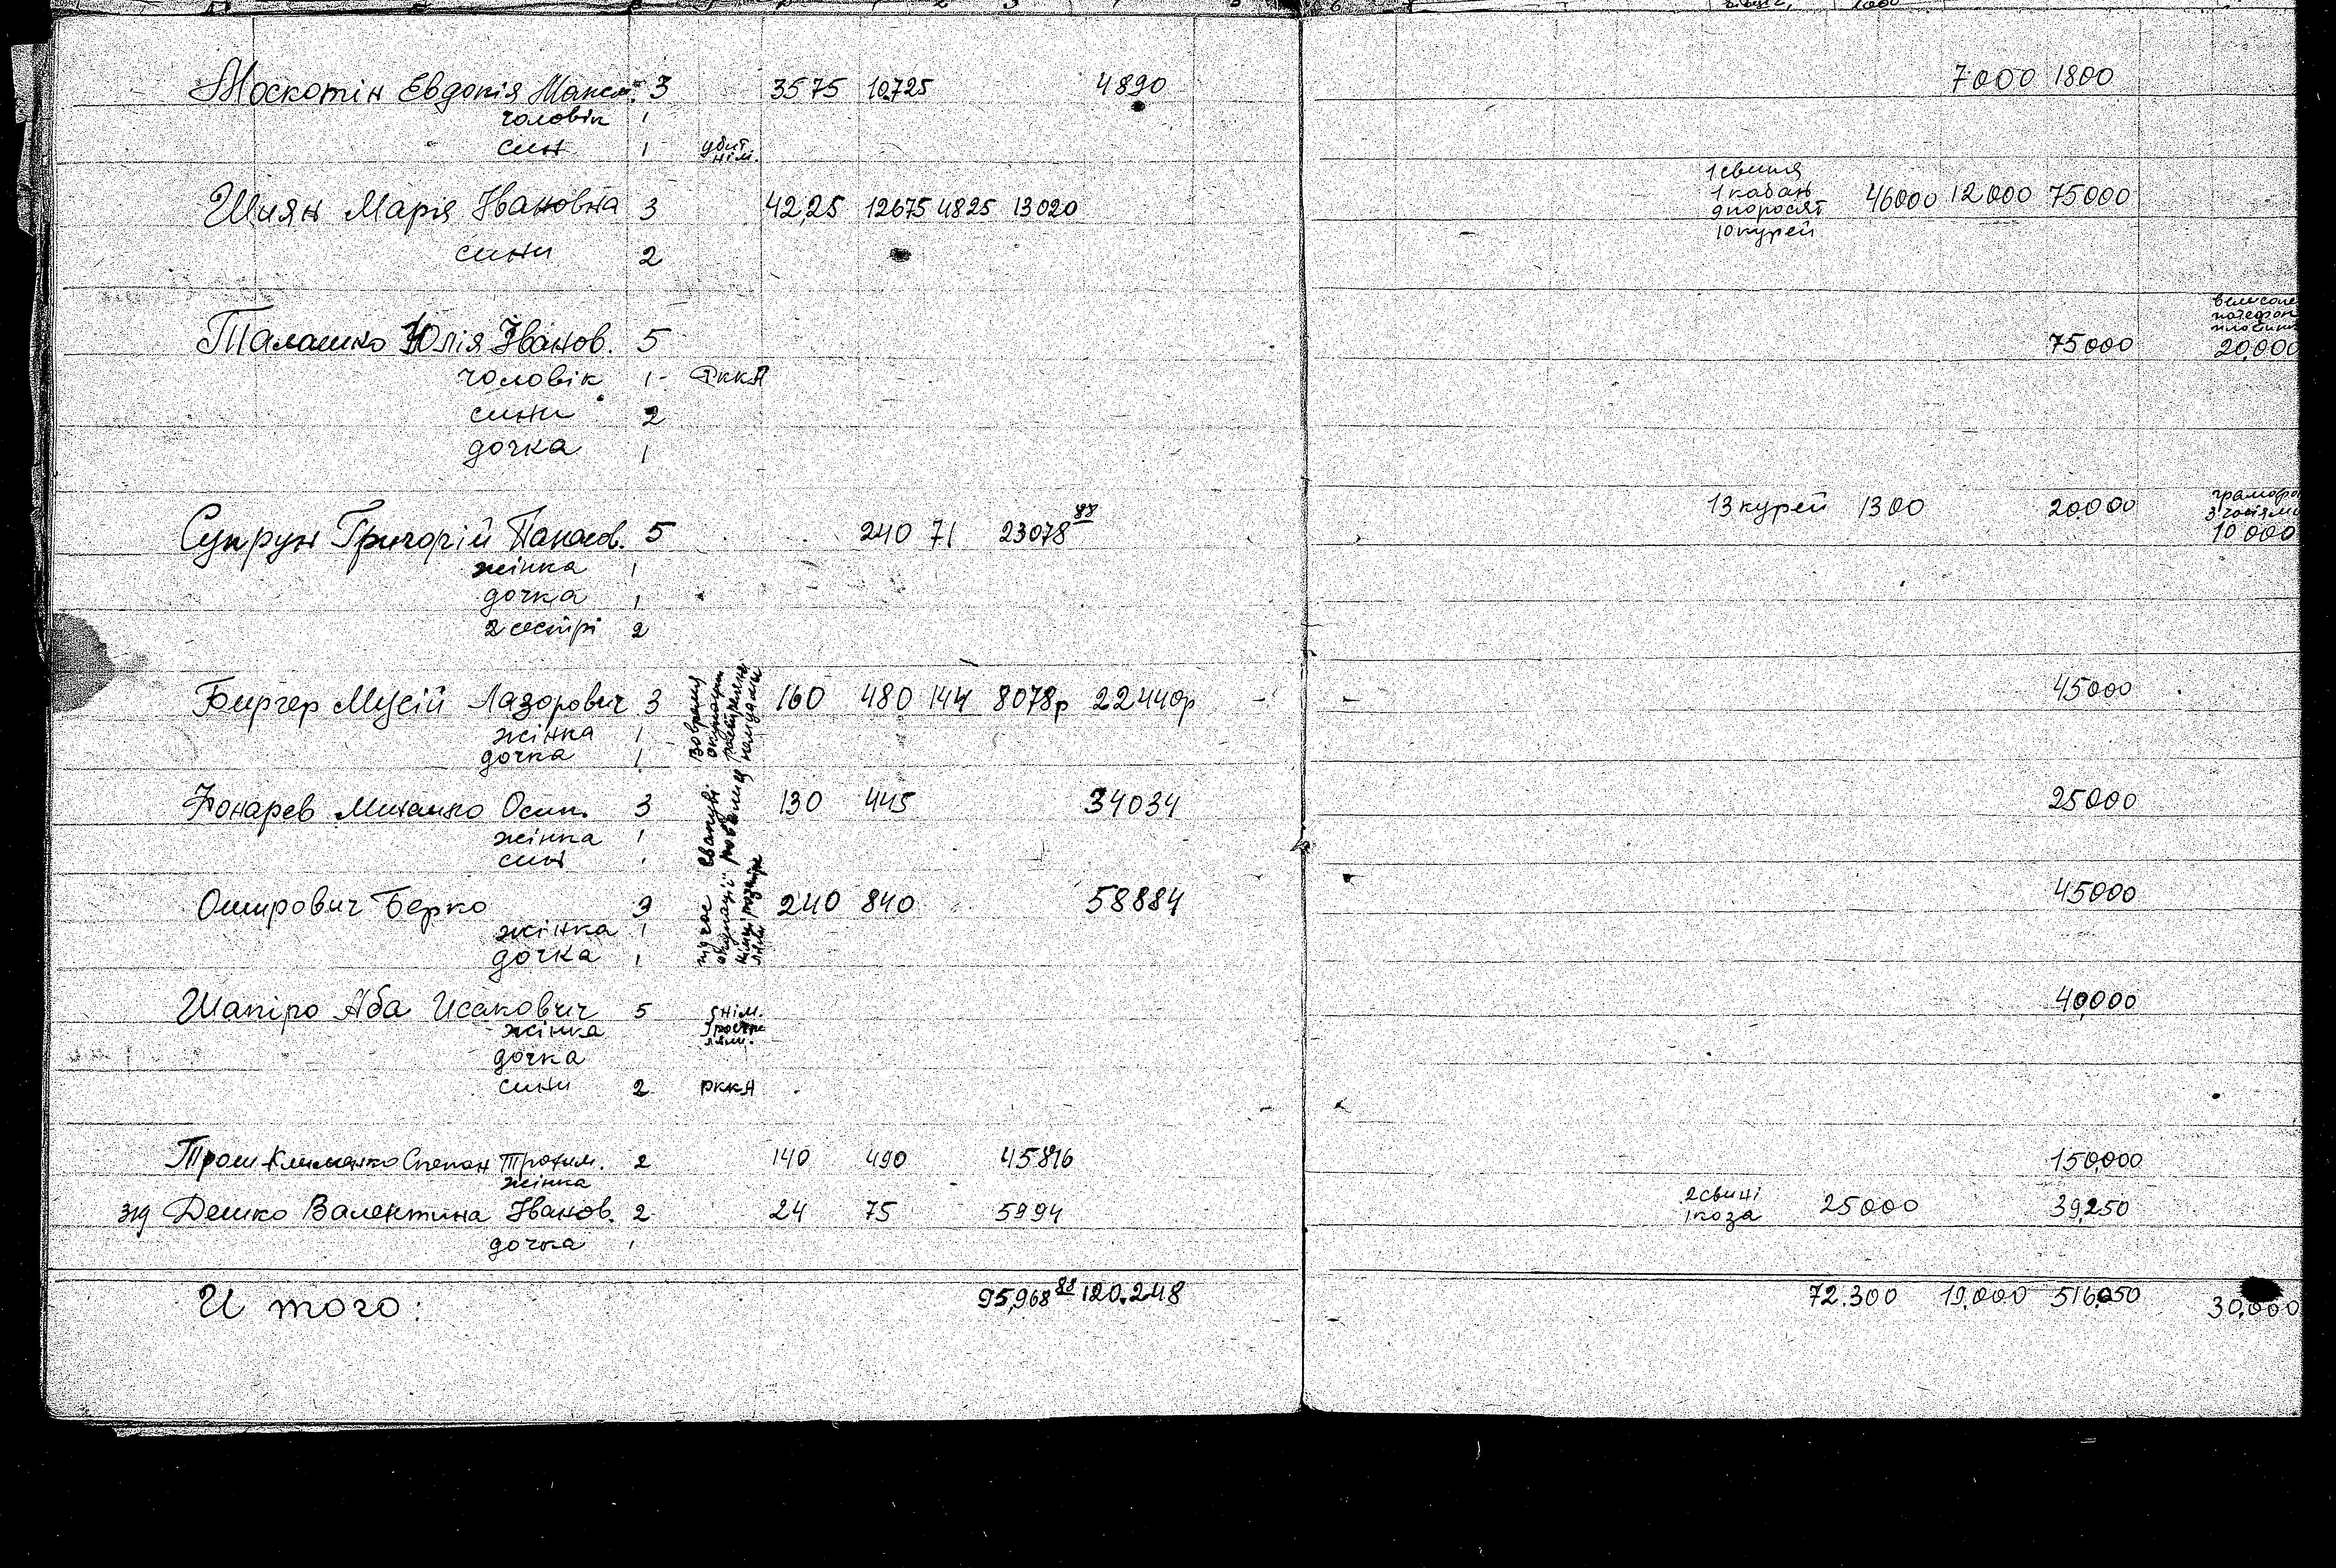 Москотін Евдокія Максим. 3 3575 10725 4890 7000 1800
чоловік 1
син 1 убит нім.
Шиян Марія Івановна 3 42,25 12675 4825 13020 46000 12000 75000
1 свиня
1 кабан
9 поросят
10 курей
сини 2
Талашко Юлія Іванов. 5 75000 20,000
чоловік 1 - РККА
сини 2
дочка 1
Супрун Григорій Панасов. 5 240 71 23078 88 13 курей 1300 20.000 10 000
жінка 1
дочка 1
2 сестрі 2
Биргер Мусій Лазорович 3 160 480 144 8078р 22440р 45000
жінка 1
дочка 1
Михалко Осип. 3 130 445 34034 25000
жінка 1
син 1
Ошерович Берко 3 240 840 58884 45000
жінка 1
дочка 1
Шапіро Аба Исакович 5 40,000
жінка
дочка
сини 2 РККА
Степан Трохим. 2 140 490 45816 150,000
жінка
Дешко Валентина Іванов. 2 24 75 5994 25000 39,250
2 свині
1 коза
дочка 1
И того: 95,968 88 120.248 72.300 19.000 516,050 30,000